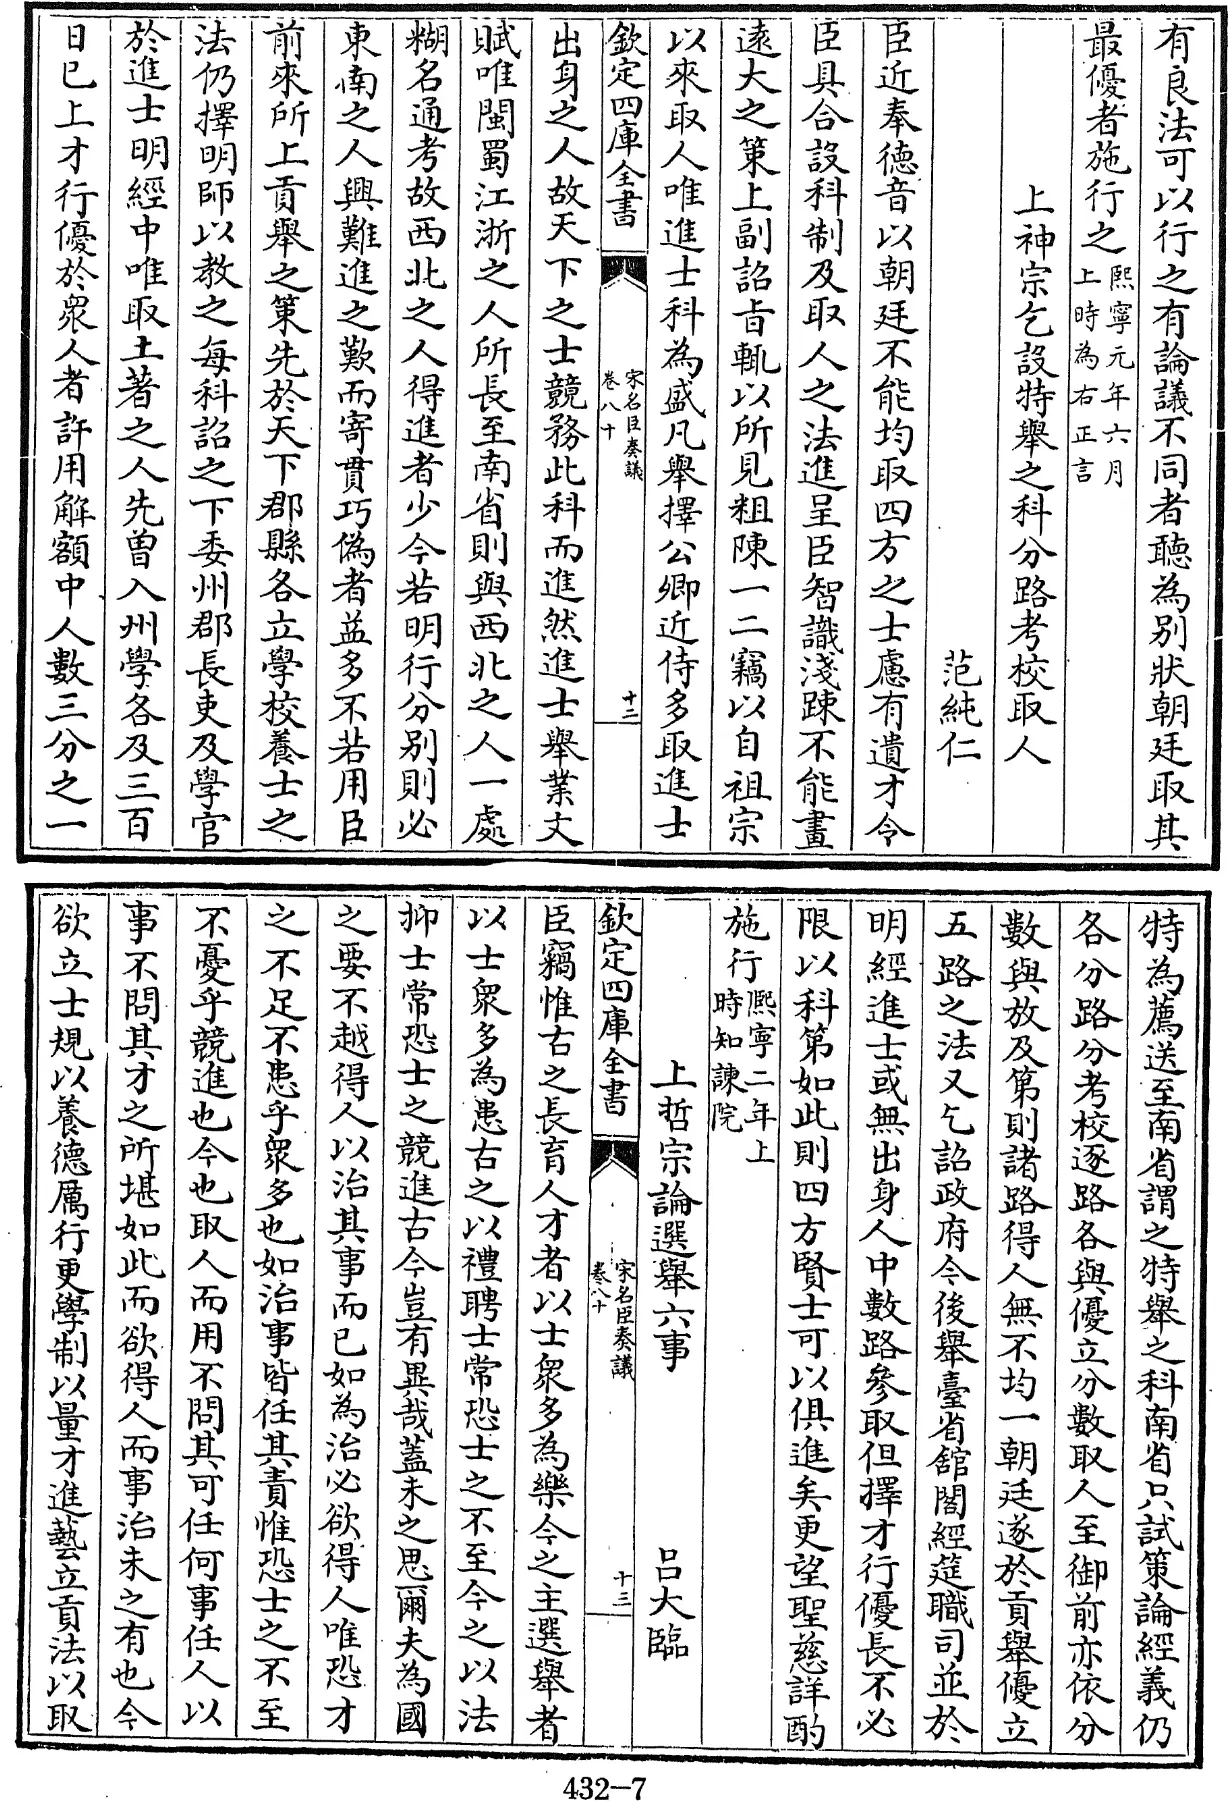 有良法可以行之有論議不同者聽為別狀朝廷取其
最優者施行之熙寧元年六月
上時為右正言
上神宗乞設特舉之科分路考校取人
范純仁
臣近奉德音以朝廷不能均取四方之士慮有遺才令
臣具合設科制及取人之法進呈臣智識淺踈不能畫
遠大之策上副詔旨輒以所見粗陳一二竊以自祖宗
以來取人唯進士科為盛凡舉擇公卿近侍多取進士
欽定四庫全書
宋名臣奏議
卷八十
十二
出身之人故天下之士競務此科而進然進士舉業文
賦唯閩蜀江浙之人所長至南省則與西北之人一處
糊名通考故西北之人得進者少今若明行分別則必
東南之人興難進之歎而寄貫巧偽者益多不若用臣
前來所上貢舉之策先於天下郡縣各立學校養士之
法仍擇明師以教之每科詔之下委州郡長吏及學官
於進士明經中唯取土著之人先曾入州學各及三百
日已上才行優於衆人者許用解額中人數三分之一
特為薦送至南省謂之特舉之科南省只試策論經義仍
各分路分考校逐路各與優立分數取人至御前亦依分
數與放及第則諸路得人無不均一朝廷遂於貢舉優立
五路之法又乞詔政府今後舉臺省舘閣經筵職司並於
明經進士或無出身人中數路參取但擇才行優長不必
限以科第如此則四方賢士可以俱進矣更望聖慈詳酌
施行熙寧二年上
時知諫院
上哲宗論選舉六事
呂大臨
欽定四庫全書
宋名臣奏議
卷八十
十三
臣竊惟古之長育人才者以士衆多為樂今之主選舉者
以士衆多為患古之以禮聘士常恐士之不至今之以法
抑士常恐士之競進古今豈有異哉蓋未之思爾夫為國
之要不越得人以治其事而已如為治必欲得人唯恐才
之不足不患乎衆多也如治事皆任其責惟恐士之不至
不憂乎競進也今也取人而用不問其可任何事任人以
事不問其才之所堪如此而欲得人而事治未之有也今
欲立士規以養德厲行更學制以量才進藝立貢法以取
432-7